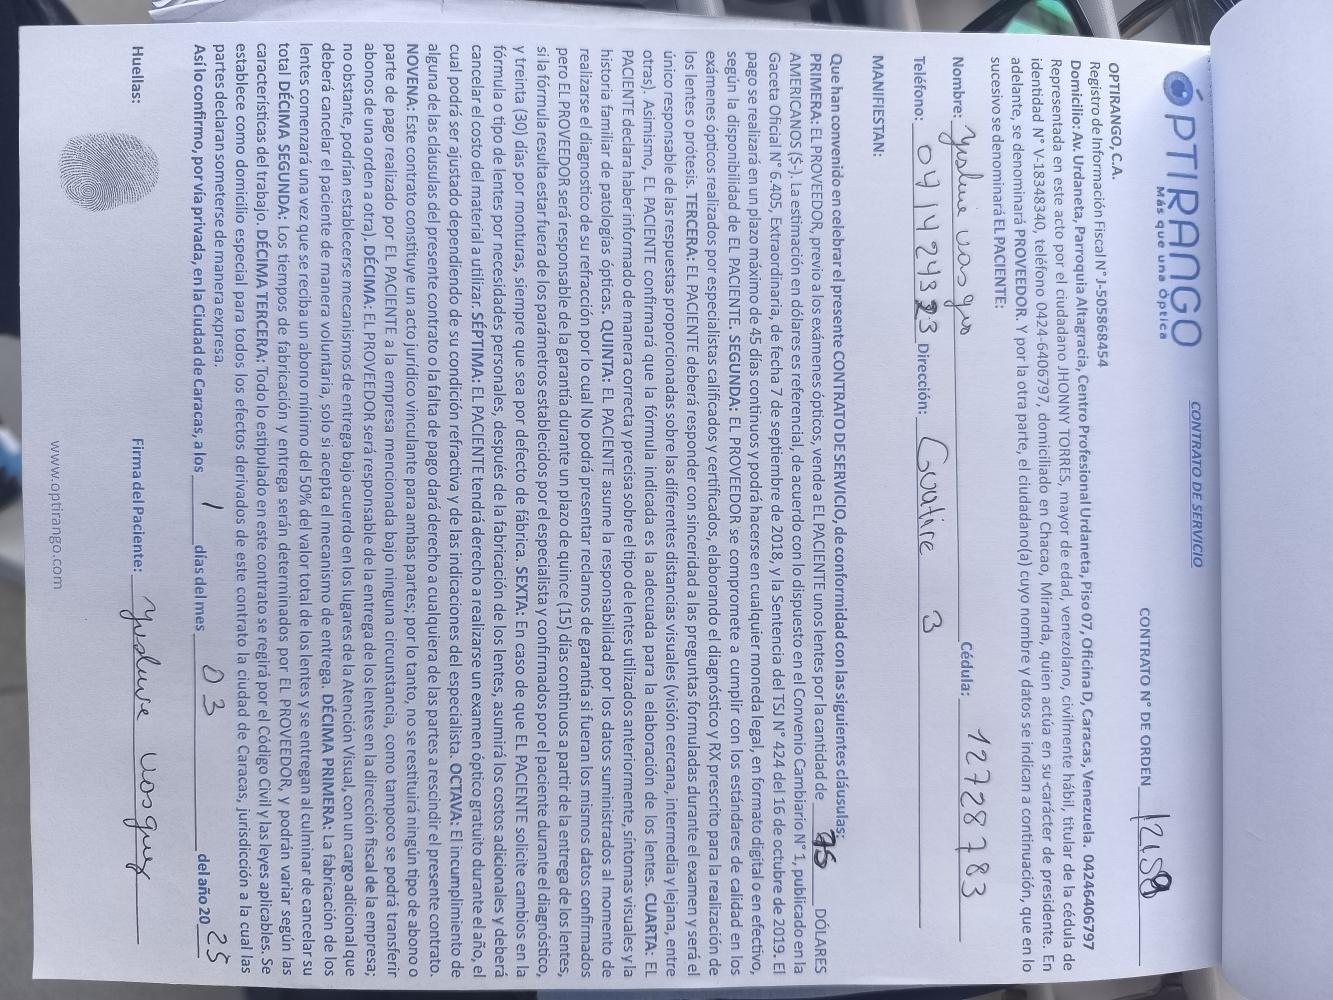 OPTIRANGO
Más que una óptica
CONTRATO DE SERVICIO
CONTRATO N° DE ORDEN
OPTIRANGO, C.A.
Registro de Información Fiscal N° J-505868454
Domicilio: Av. Urdaneta, Parroquia Altagracia, Centro Profesional Urdaneta, Piso 07, Oficina D, Caracas, Venezuela. 04246406797
Representada en este acto por el ciudadano JHONNY TORRES, mayor de edad, venezolano, civilmente hábil, titular de la cédula de
identidad N° V-18348340, teléfono 0424-6406797, domiciliado en Chacao, Miranda, quien actúa en su carácter de presidente. En
adelante, se denominará PROVEEDOR. Y por la otra parte, el ciudadano(a) cuyo nombre y datos se indican a continuación, que en lo
sucesivo se denominará EL PACIENTE:
Nombre: Cédula: 12728783
Teléfono: Dirección: Guatire 3
MANIFIESTAN:
Que han convenido en celebrar el presente CONTRATO DE SERVICIO, de conformidad con las siguientes cláusulas:
PRIMERA: EL PROVEEDOR, previo a los exámenes ópticos, vende a EL PACIENTE unos lentes por la cantidad de 75 DÓLARES
AMERICANOS ($-). La estimación en dólares es referencial, de acuerdo con lo dispuesto en el Convenio Cambiario N° 1, publicado en la
Gaceta Oficial N° 6.405, Extraordinaria, de fecha 7 de septiembre de 2018, y la Sentencia del TSJ N° 424 del 16 de octubre de 2019. El
pago se realizará en un plazo máximo de 45 días continuos y podrá hacerse en cualquier moneda legal, en formato digital o en efectivo,
según la disponibilidad de EL PACIENTE. SEGUNDA: EL PROVEEDOR se compromete a cumplir con los estándares de calidad en los
exámenes ópticos realizados por especialistas calificados y certificados, elaborando el diagnóstico y RX prescrito para la realización de
los lentes o prótesis. TERCERA: EL PACIENTE deberá responder con sinceridad a las preguntas formuladas durante el examen y será el
único responsable de las respuestas proporcionadas sobre las diferentes distancias visuales (visión cercana, intermedia y lejana, entre
otras). Asimismo, EL PACIENTE confirmará que la fórmula indicada es la adecuada para la elaboración de los lentes. CUARTA: EL
PACIENTE declara haber informado de manera correcta y precisa sobre el tipo de lentes utilizados anteriormente, síntomas visuales y la
historia familiar de patologías ópticas. QUINTA: EL PACIENTE asume la responsabilidad por los datos suministrados al momento de
realizarse el diagnostico de su refracción por lo cual No podrá presentar reclamos de garantía si fueran los mismos datos confirmados
pero EL PROVEEDOR será responsable de la garantía durante un plazo de quince (15) días continuos a partir de la entrega de los lentes,
si la fórmula resulta estar fuera de los parámetros establecidos por el especialista y confirmados por el paciente durante el diagnóstico,
y treinta (30) días por monturas, siempre que sea por defecto de fábrica. SEXTA: En caso de que EL PACIENTE solicite cambios en la
fórmula o tipo de lentes por necesidades personales, después de la fabricación de los lentes, asumirá los costos adicionales y deberá
cancelar el costo del material a utilizar. SÉPTIMA: EL PACIENTE tendrá derecho a realizarse un examen óptico gratuito durante el año, el
cual podrá ser ajustado dependiendo de su condición refractiva y de las indicaciones del especialista. OCTAVA: El incumplimiento de
alguna de las cláusulas del presente contrato o la falta de pago dará derecho a cualquiera de las partes a rescindir el presente contrato.
NOVENA: Este contrato constituye un acto jurídico vinculante para ambas partes; por lo tanto, no se restituirá ningún tipo de abono o
parte de pago realizado por EL PACIENTE a la empresa mencionada bajo ninguna circunstancia, como tampoco se podrá transferir
abonos de una orden a otra). DÉCIMA: EL PROVEEDOR será responsable de la entrega de los lentes en la dirección fiscal de la empresa;
no obstante, podrían establecerse mecanismos de entrega bajo acuerdo en los lugares de la Atención Visual, con un cargo adicional que
deberá cancelar el paciente de manera voluntaria, solo si acepta el mecanismo de entrega. DÉCIMA PRIMERA: La fabricación de los
lentes comenzará una vez que se reciba un abono mínimo del 50% del valor total de los lentes y se entregan al culminar de cancelar su
total DÉCIMA SEGUNDA: Los tiempos de fabricación y entrega serán determinados por EL PROVEEDOR, y podrán variar según las
características del trabajo. DÉCIMA TERCERA: Todo lo estipulado en este contrato se regirá por el Código Civil y las leyes aplicables. Se
establece como domicilio especial para todos los efectos derivados de este contrato la ciudad de Caracas, jurisdicción a la cual las
partes declaran someterse de manera expresa.
Así lo confirmo, por vía privada, en la Ciudad de Caracas, a los 1 días del mes 03 del año 2025
Huellas: Firma del Paciente:
www.optirango.com